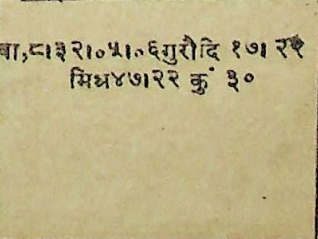 बा,८।३२।०५।०६गुरौदि १७। २१
मिथ४७।२२ कुं ३०